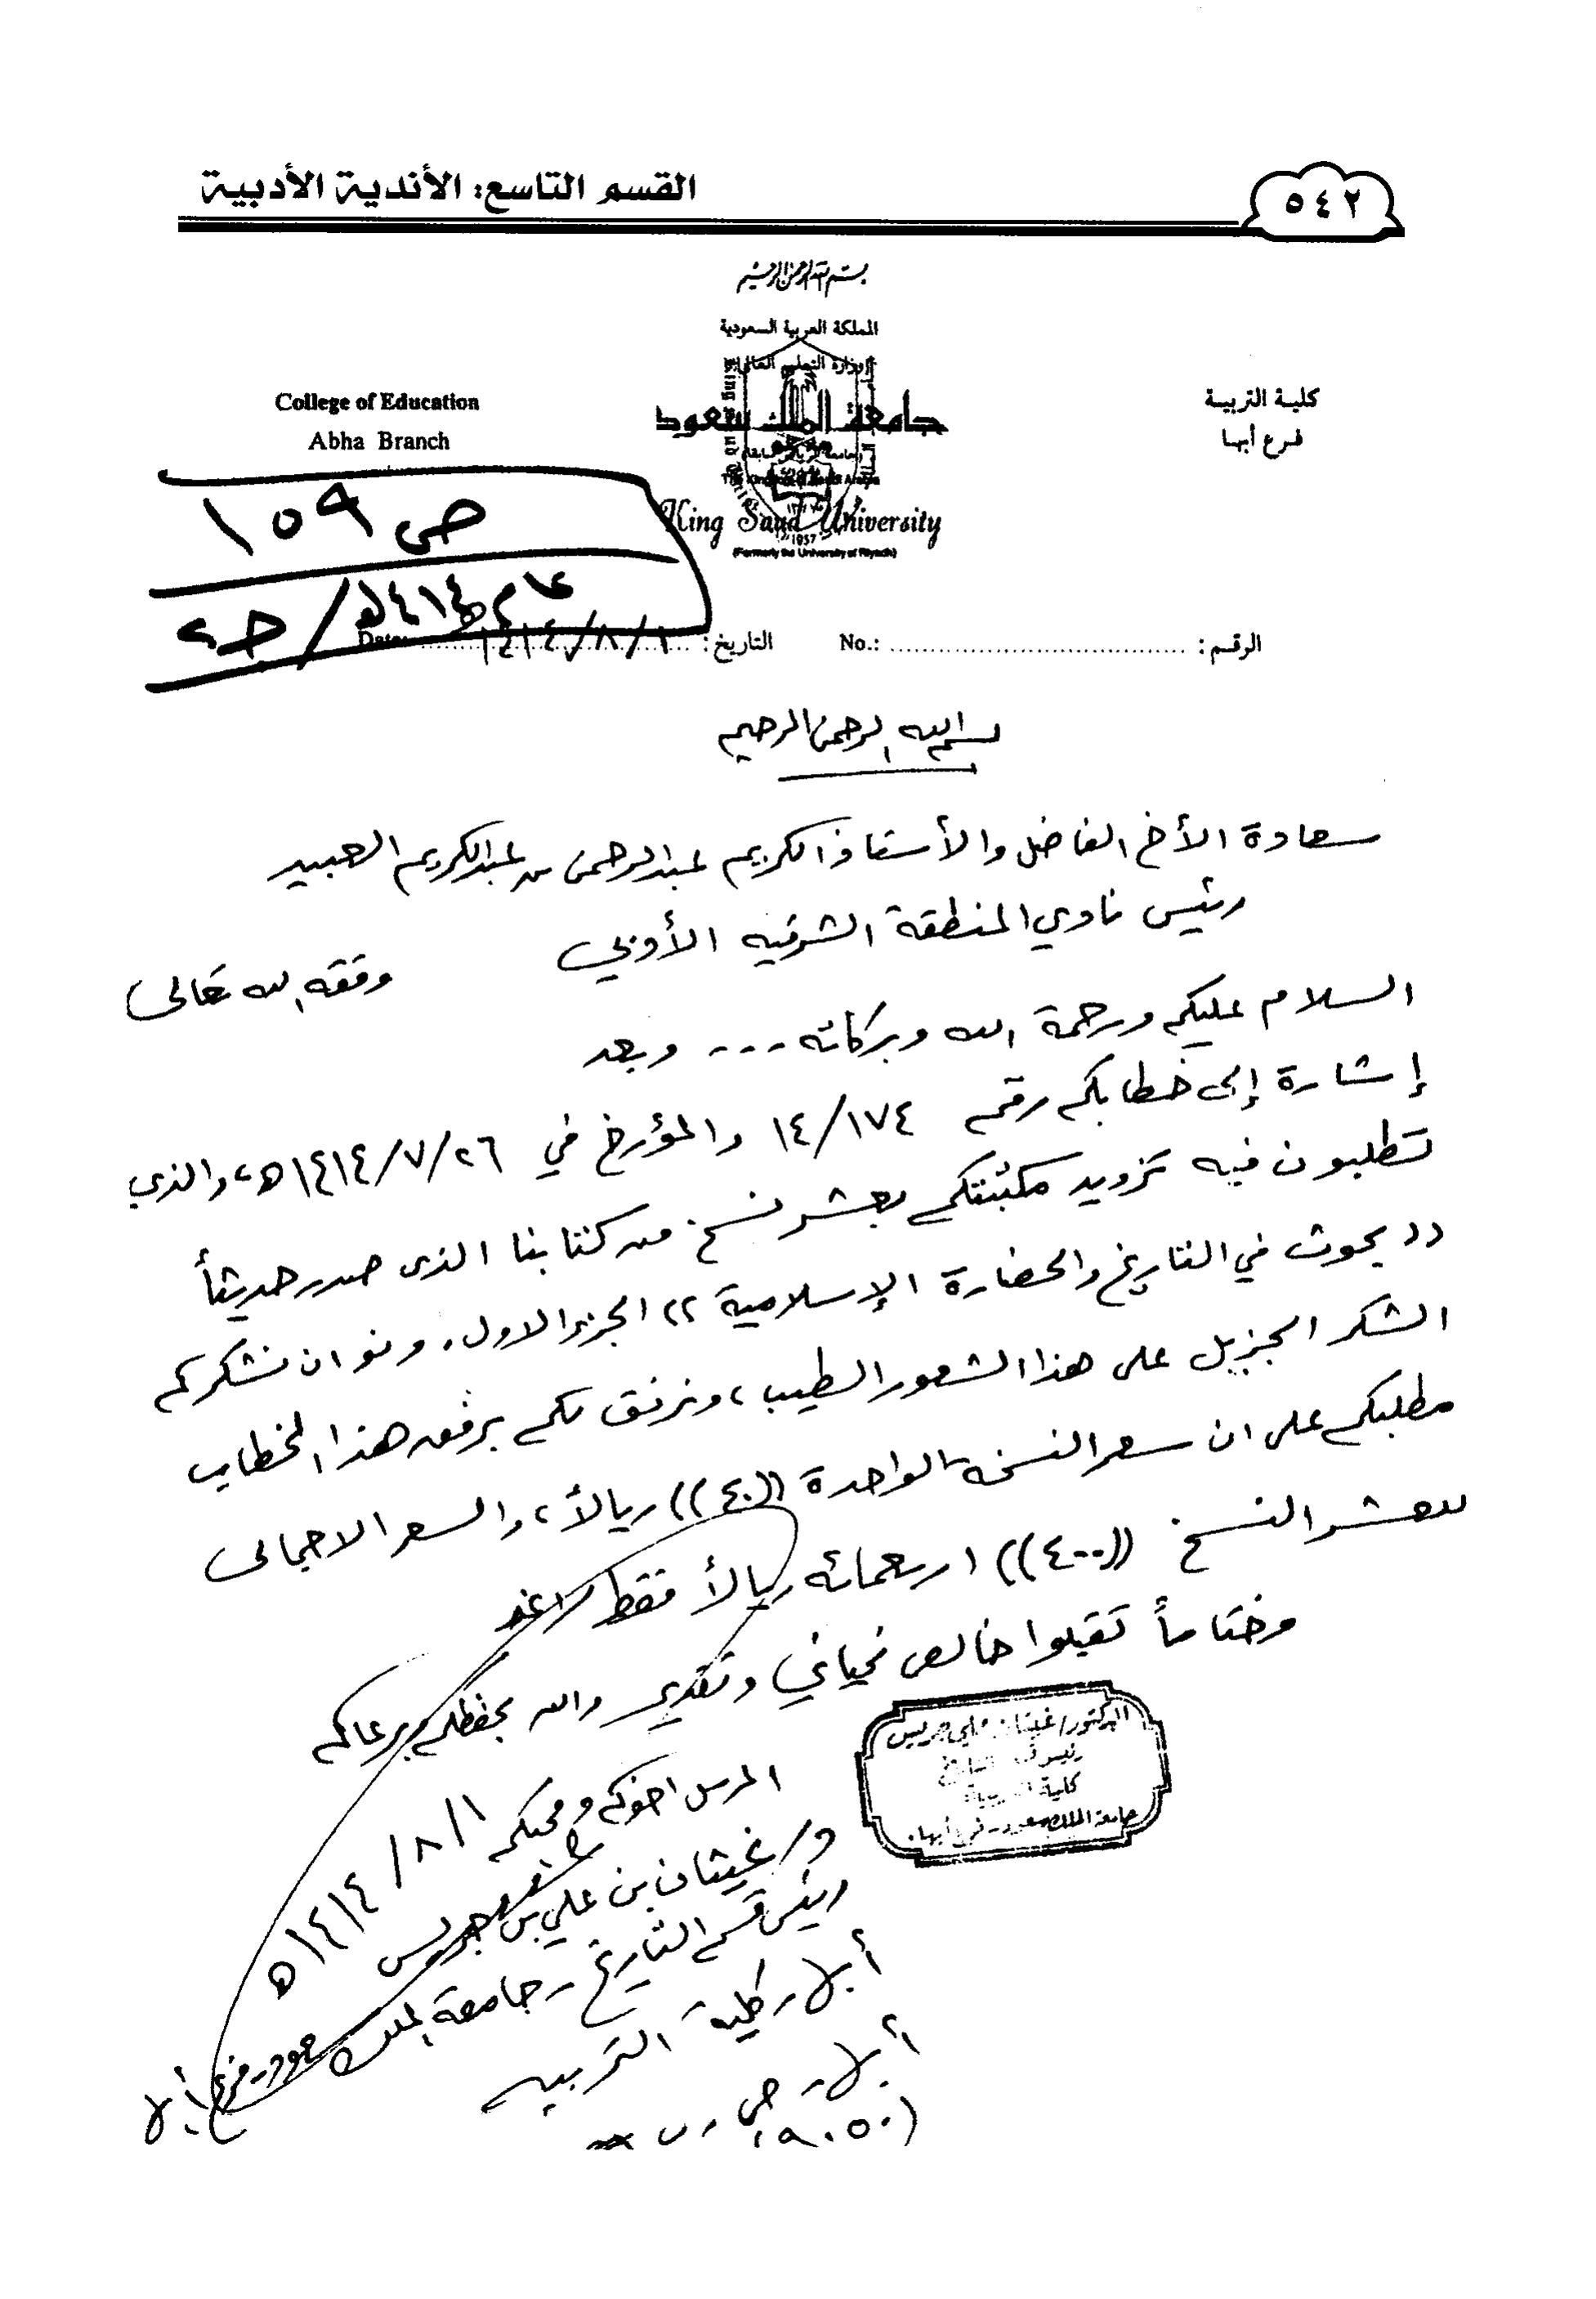 ٥٤٢
القسم التاسع: الأندية الأدبية
بسم الله الرحمن الرحيم
المملكة العربية السعودية
وزارة التعليم العالي
جامعة الملك سعود
King Saud University
1957
(Formerly the University of Riyadh)
كلية التربية
فرع أبها
College of Education
Abha Branch
ص ١٥٩
عام ١٤١٤هـ / جـ٢
الرقم : No.:
التاريخ : ١٤١٤/٨/١هـ Date:
بسم الله الرحمن الرحيم
سعادة الأخ الفاضل والأستاذ الكريم عبدالرحمن بن عبدالكريم العبيد
رئيس نادي المنطقة الشرقية الأدبي
وفقه الله تعالى
السلام عليكم ورحمة الله وبركاته --- وبعد
إشارة إلى خطابكم رقم ١٤/١٧٤ والمؤرخ في ١٤١٤/٧/٢٦هـ، والذي
تطلبون فيه تزويد مكتبتكم بعشر نسخ من كتابنا الذي صدر حديثاً
(( بحوث في التاريخ والحضارة الإسلامية )) الجزء الاول. ونود ان نشكركم
الشكر الجزيل على هذا الشعور الطيب، ونرفق لكم برفقه هذا الخطاب
مطلبكم على ان سعر النسخة الواحدة ((٤٠)) ريالاً، والسعر الاجمالي
للعشر النسخ ((٤٠٠)) اربعمائه ريالاً فقط لا غير
وختاماً تقبلوا خالص تحياتي وتقديري والله يحفظكم ويرعاكم
الدكتور/ غيثان علي جريس
رئيس قسم التاريخ
كلية التربية
جامعة الملك سعود - فرع أبها
المرسل اخوكم ومحبكم
١٤١٤/٨/١هـ
د/ غيثان بن علي بن جريس
رئيس قسم التاريخ - جامعة الملك سعود - فرع أبها
أبها - كلية التربيه
أبها - ص . ب